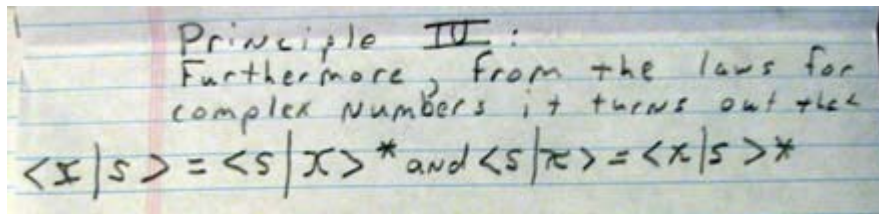 Principle IV:
Furthermore, from the laws for
complex numbers it turns out that
<x|s> = <s|x>* and <s|x> = <x|s>*